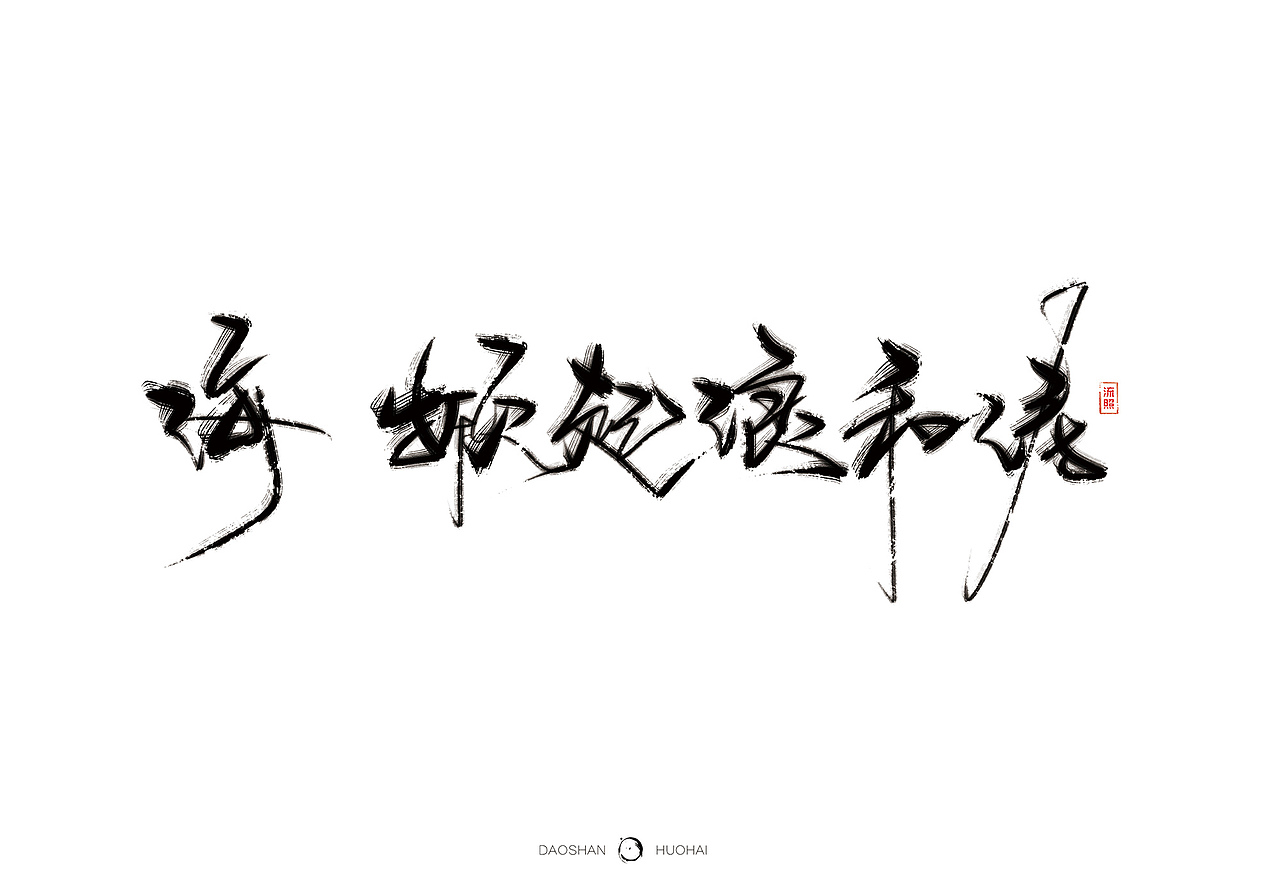 海 频起浪和涛
流照
DAOSHAN HUOHAI